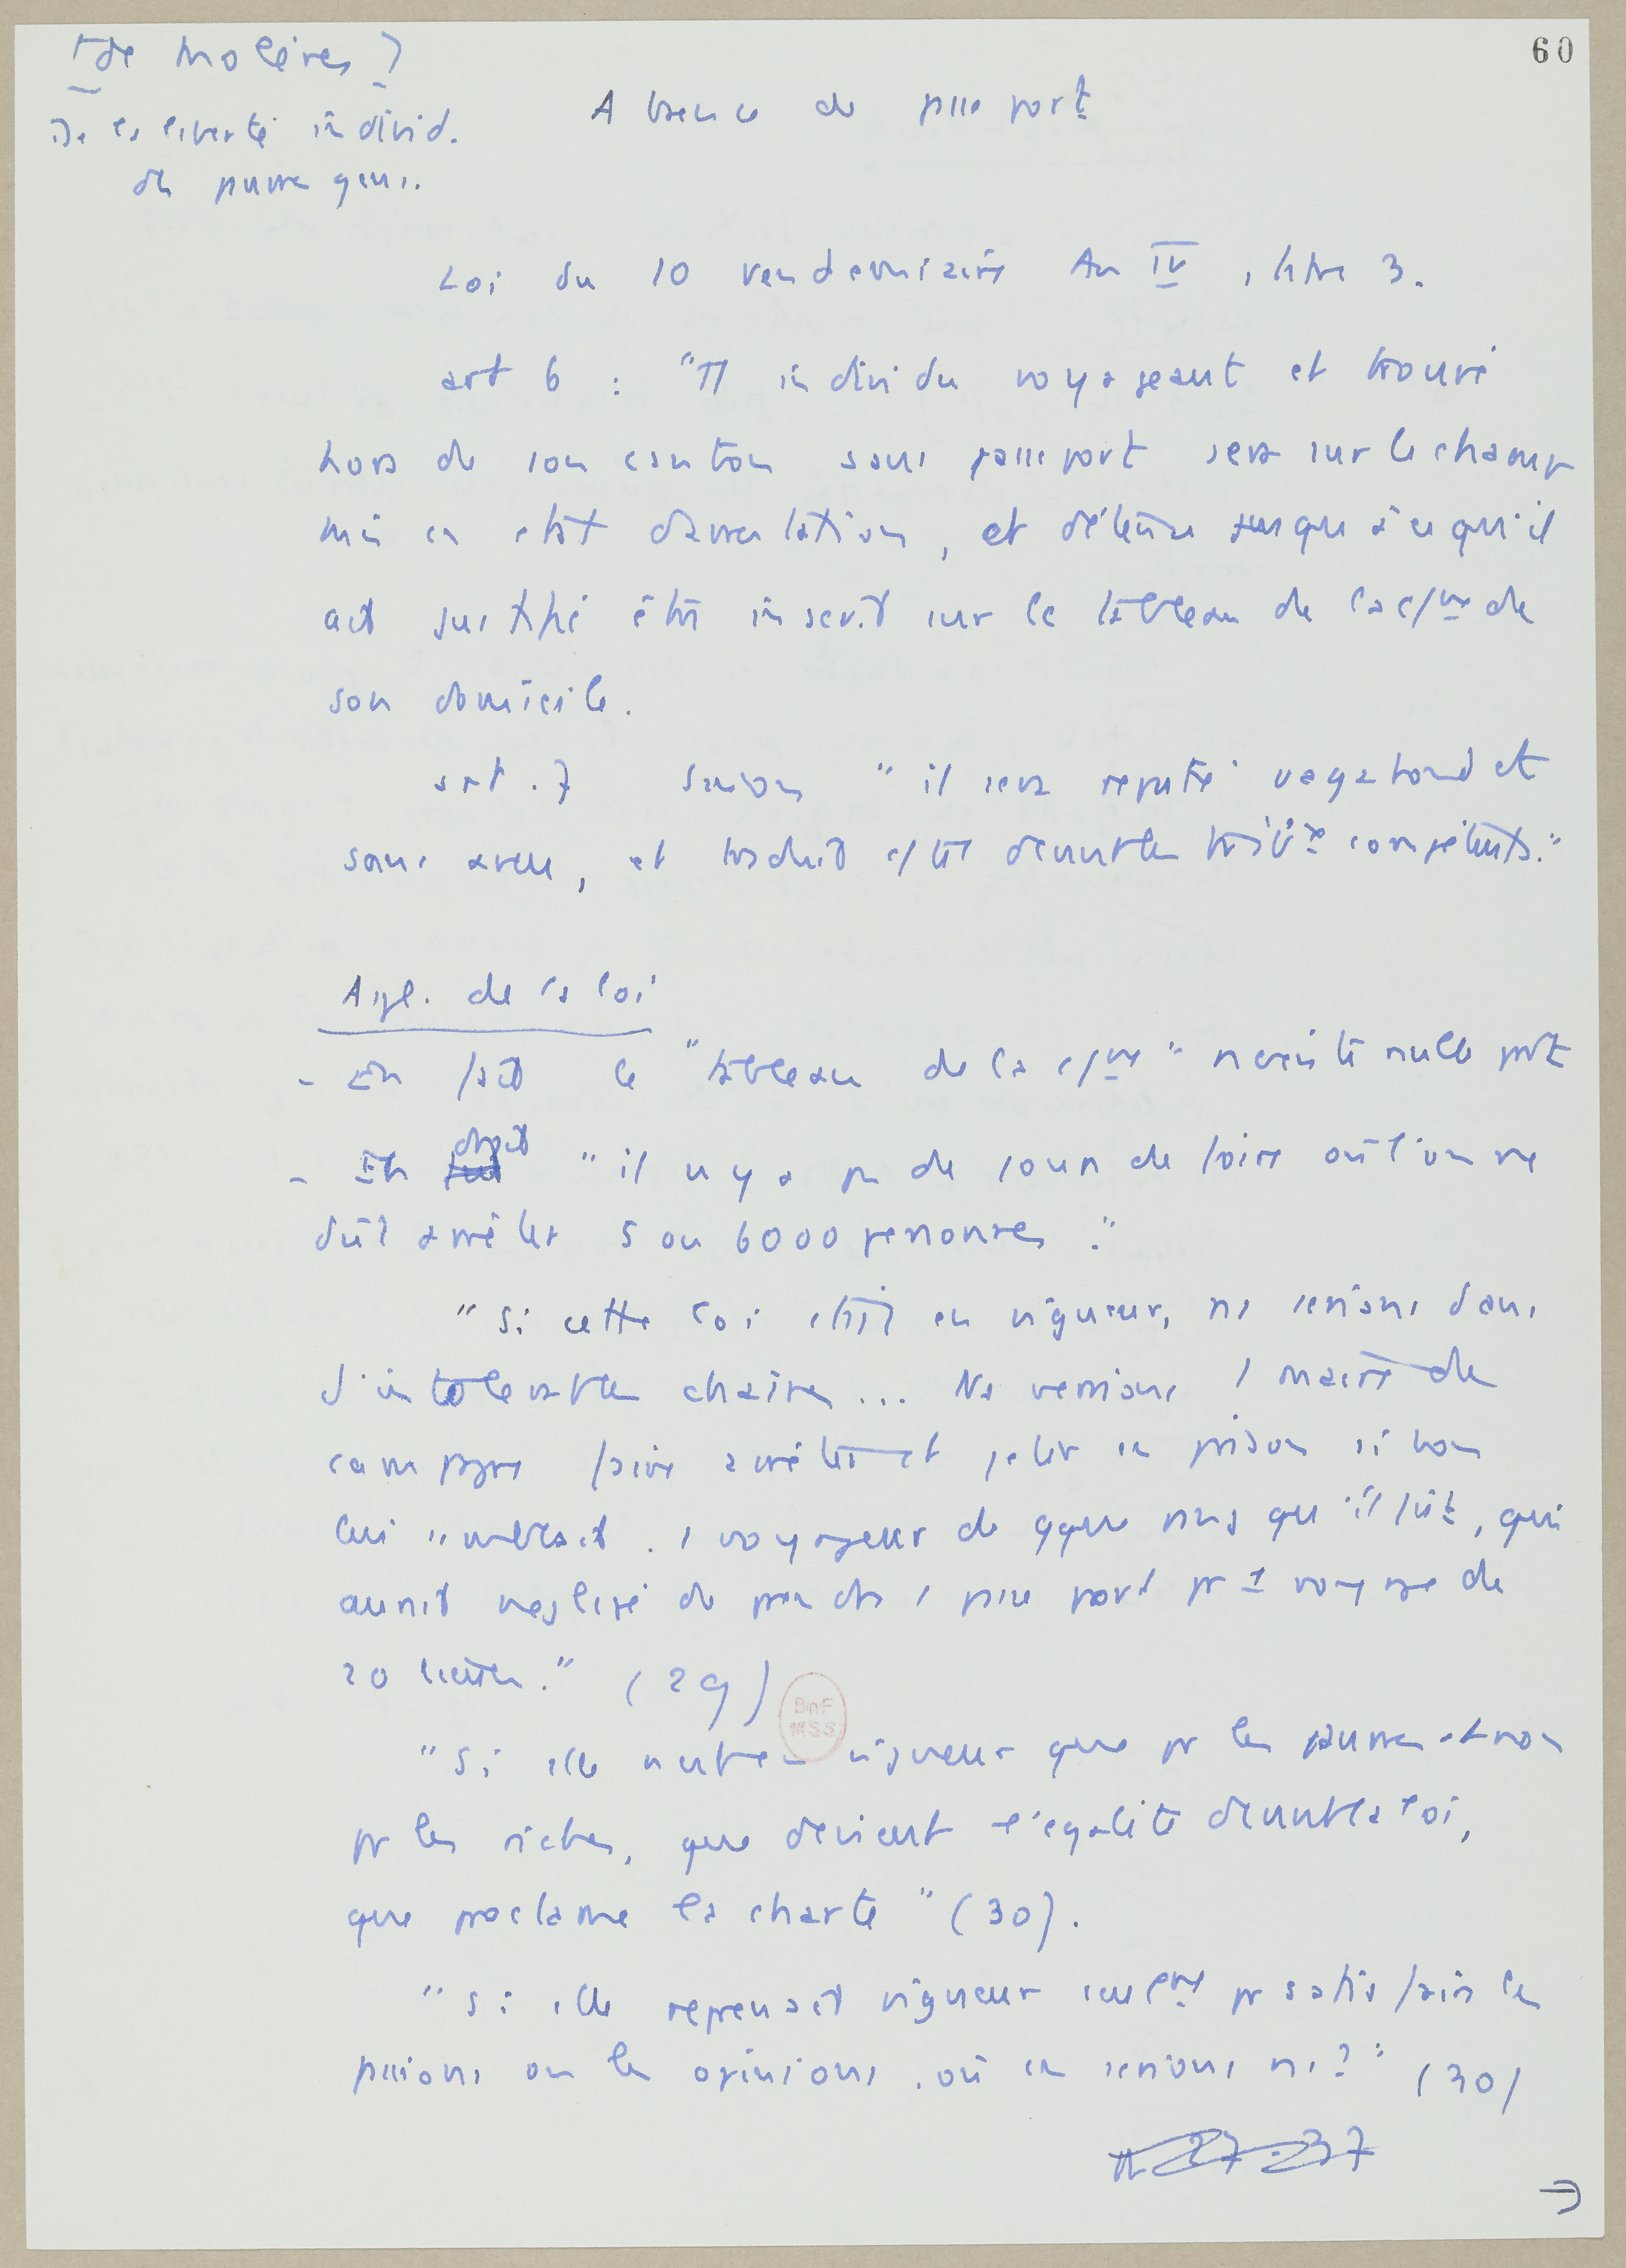 [de Molènes]
60
De la liberté individ.
des pauvres gens.
Absence de passeport
Loi du 10 vendemiaire An IV, titre 3.
art 6 : "Tt individu voyageant et trouvé
hors de son canton sans passeport sera sur le champ
mis en etat d'arrestation, et détenu jusqu'à ce qu'il
ait justifié être inscrit sur le tableau de la c/ne de
son domicile.
art. 7 sinon "il sera reputé vagabond et
sans aveu, et traduit c/ tel devant les trib.x compétents."
Appl. de la loi
- En fait le "tableau de la c/ne" n'existe nulle part
- En droit "il n'y a pas de jour de foire où l'on ne
dût arrêter 5 ou 6000 personnes."
"Si cette loi était en vigueur, ns serions dans
d'intolerables chaines... Ns verrions 1 maire de
campagne faire arrêter et jeter en prison si bon
lui semblait. 1 voyageur de qque rang qu'il fût, qui
aurait negligé de prendre 1 passeport pr 1 voyage de
20 lieues." (29)
BnF
MSS
"Si elle n'est en vigueur que pr les pauvres et non
pr les riches, que devient l'égalité devant la loi,
que proclame la charte" (30).
"Si elle reprenait vigueur seulemt pr satisfaire les
passions ou les opinions, où en serions ns?" (30)
27-37
→